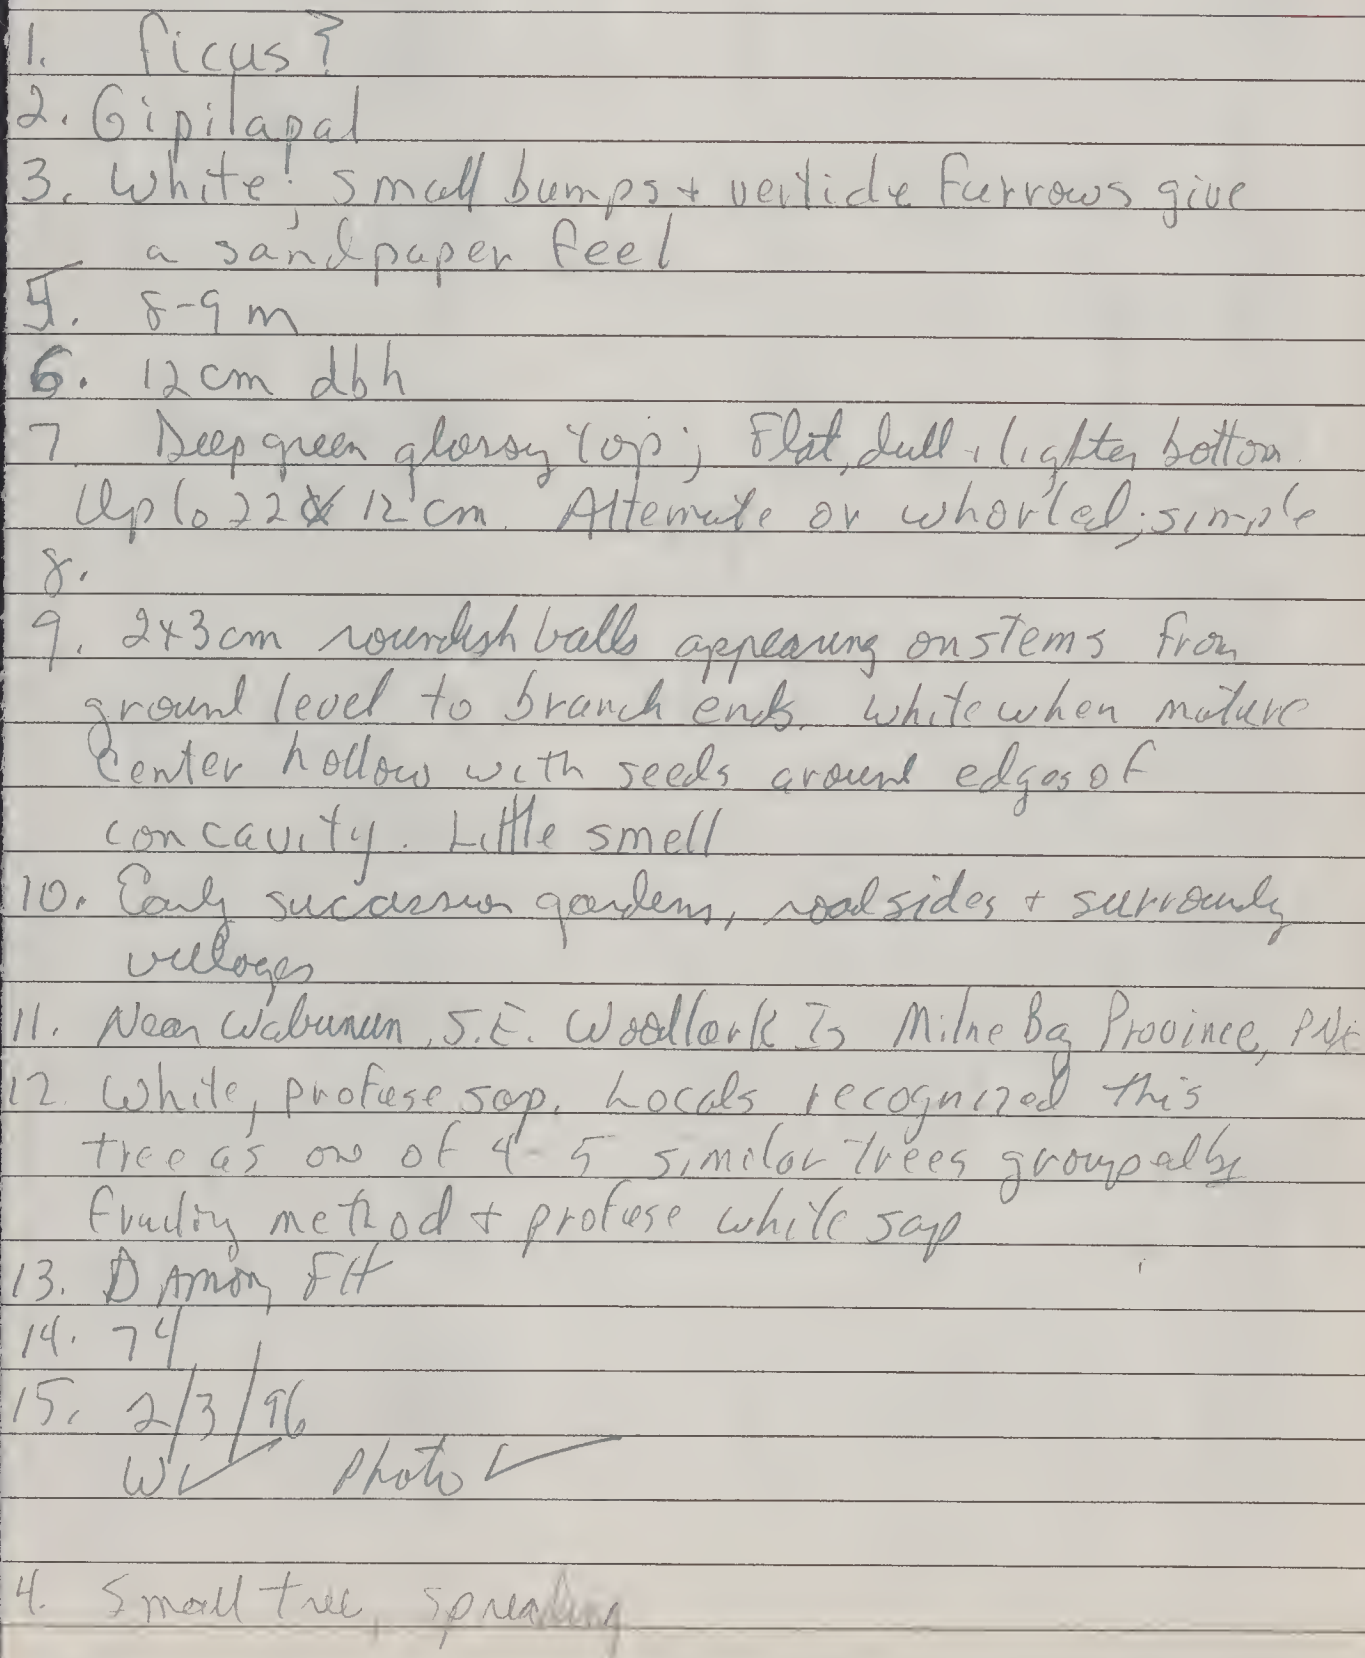 1. Ficus?
2. Gipilapal
3. White; small bumps + verticle furrows give
a sandpaper feel
5. 8-9 m
6. 12 cm dbh
7 Deep green glossy top; Flat, dull + lighter bottom.
Up to 22 x 12 cm. Alternate or whorled; simple
8.
9. 2x3cm roundish balls appearing on stems from
ground level to branch ends. White when mature
Center hollow with seeds around edges of
concavity. Little smell
10. Early succession gardens, roadsides + surroundg
villages
11. Near Wabunun, S.E. Woodlark Is Milne Bay Province, PNG
12. White, profuse sap. Locals recognized this
tree as one of 4-5 similar trees grouped by
fruiting method + profuse white sap
13. D Amon, FH
14. 74
15. 2/3/96
W✓ Photo ✓
4. Small tree, spreading